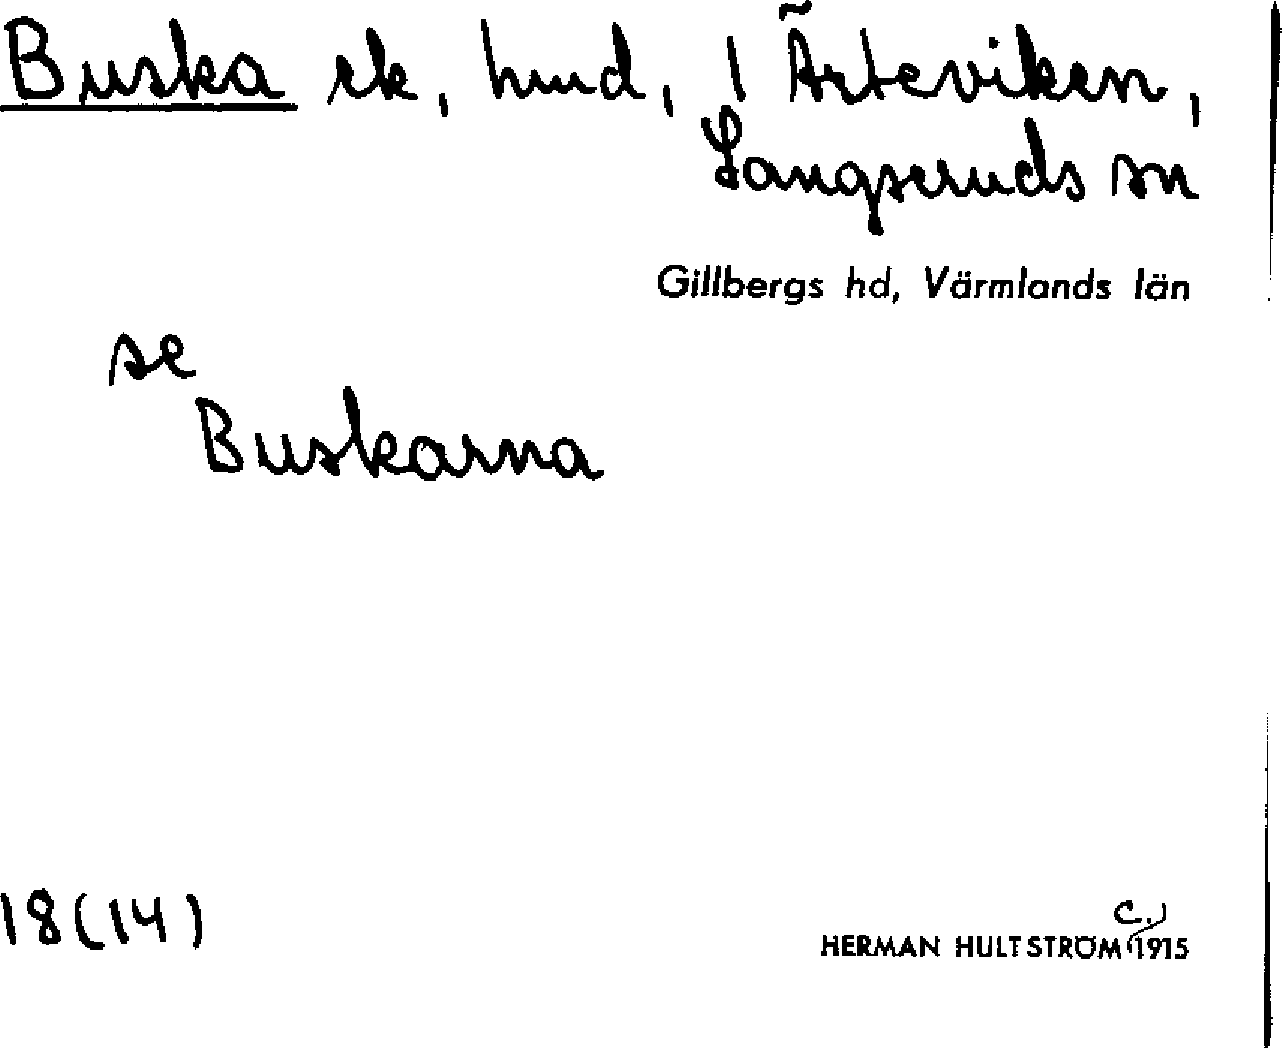 Buska ek, hmd, 1 Ärteviken,
Långseruds sn
Gillbergs hd, Värmlands län
se
Buskarna
18(14)
c.
HERMAN HULTSTRÖM 1915